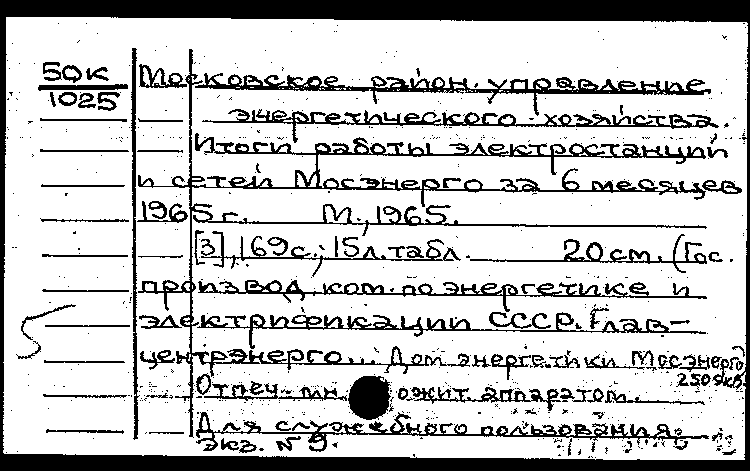 50К
1025
Московское район. управление
энергетического хозяйства.
Итоги работы электростанций
и сетей Мосэнерго за 6 месяцев
1965 г. М., 1965.
[3], 169 с.; 15 л. табл. 20 см. (Гос.
производ. ком. по энергетике и
электрификации СССР. Глав-
центрэнерго... Дом энергетики Мосэнерго)
250 экз.
5
Отпеч. мн ожит. аппаратом.
Для служебного пользования.
Экз. № 9.